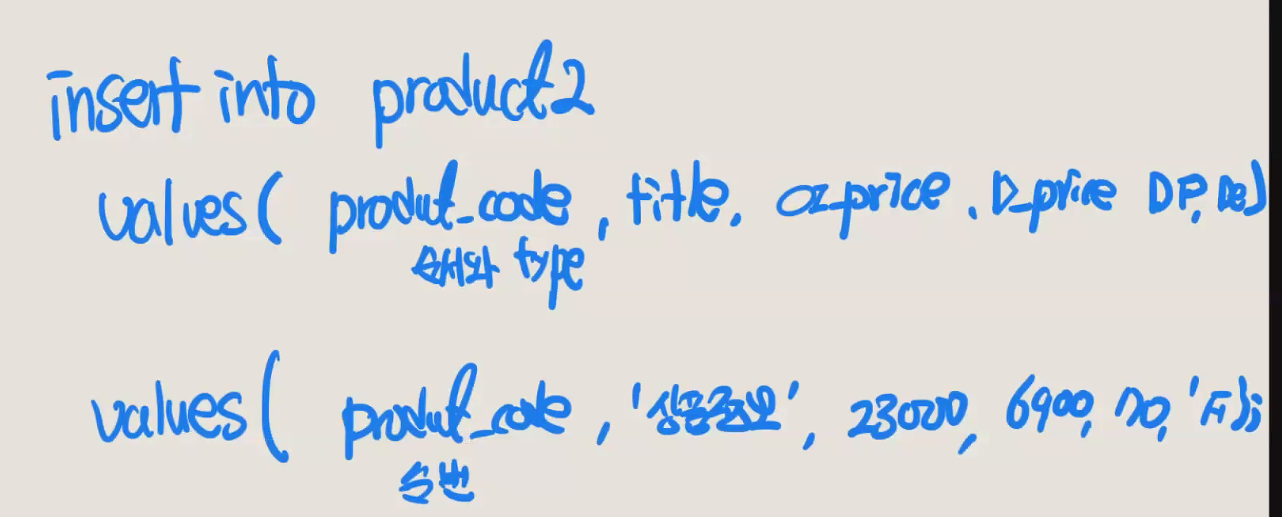 insert into product2
values( produt_code, title, oz_price, D_price DP, De)
순서와 type
values( produt_code, '상품정보', 23000, 6900, 70, '
순번